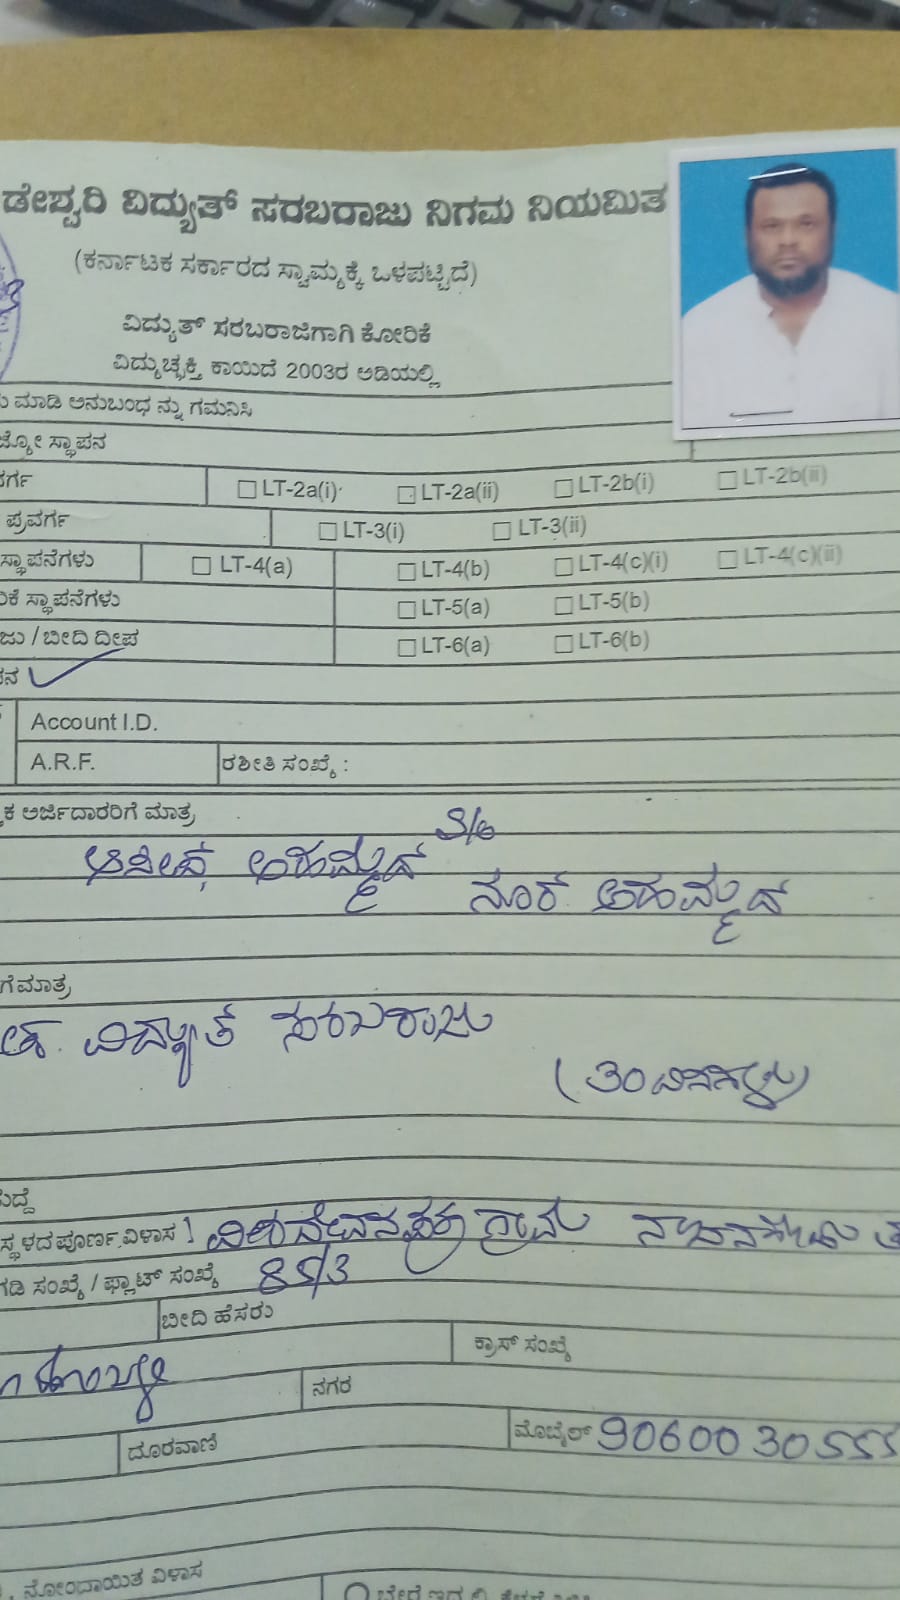 ಡೇಶ್ವರಿ ವಿದ್ಯುತ್ ಸರಬರಾಜು ನಿಗಮ ನಿಯಮಿತ
(ಕರ್ನಾಟಕ ಸರ್ಕಾರದ ಸ್ವಾಮ್ಯಕ್ಕೆ ಒಳಪಟ್ಟಿದೆ)
ವಿದ್ಯುತ್ ಸರಬರಾಜಿಗಾಗಿ ಕೋರಿಕೆ
ವಿದ್ಯುಚ್ಛಕ್ತಿ ಕಾಯಿದೆ 2003ರ ಅಡಿಯಲ್ಲಿ
ಮಾಡಿ ಅನುಬಂಧ ನ್ನು ಗಮನಿಸಿ
ಸ್ಥಾಪನ
ವರ್ಗ LT-2a(i) LT-2a(ii) LT-2b(i) LT-2b(ii)
ಪ್ರವರ್ಗ LT-3(i) LT-3(ii)
ಸ್ಥಾಪನೆಗಳು LT-4(a) LT-4(b) LT-4(c)(i) LT-4(c)(ii)
ಸ್ಥಾಪನೆಗಳು LT-5(a) LT-5(b)
ಜು / ಬೀದಿ ದೀಪ LT-6(a) LT-6(b)
Account I.D.
A.R.F. ರಶೀತಿ ಸಂಖ್ಯೆ :
ಅರ್ಜಿದಾರರಿಗೆ ಮಾತ್ರ
ಅಹಮ್ಮದ್ S/o
ನೂರ್ ಅಹಮ್ಮದ್
ಗೆ ಮಾತ್ರ
ವಿದ್ಯುತ್ ಸರಬರಾಜು
(30 ದಿನಗಳು)
ಸ್ಥಳದ ಪೂರ್ಣ ವಿಳಾಸ ಗ್ರಾಮ
ಸಂಖ್ಯೆ / ಫ್ಲಾಟ್ ಸಂಖ್ಯೆ 85/3
ಬೀದಿ ಹೆಸರು
ಕ್ರಾಸ್ ಸಂಖ್ಯೆ
ನಗರ
ದೂರವಾಣಿ ಮೊಬೈಲ್ 9060030555
ನೋಂದಾಯಿತ ವಿಳಾಸ